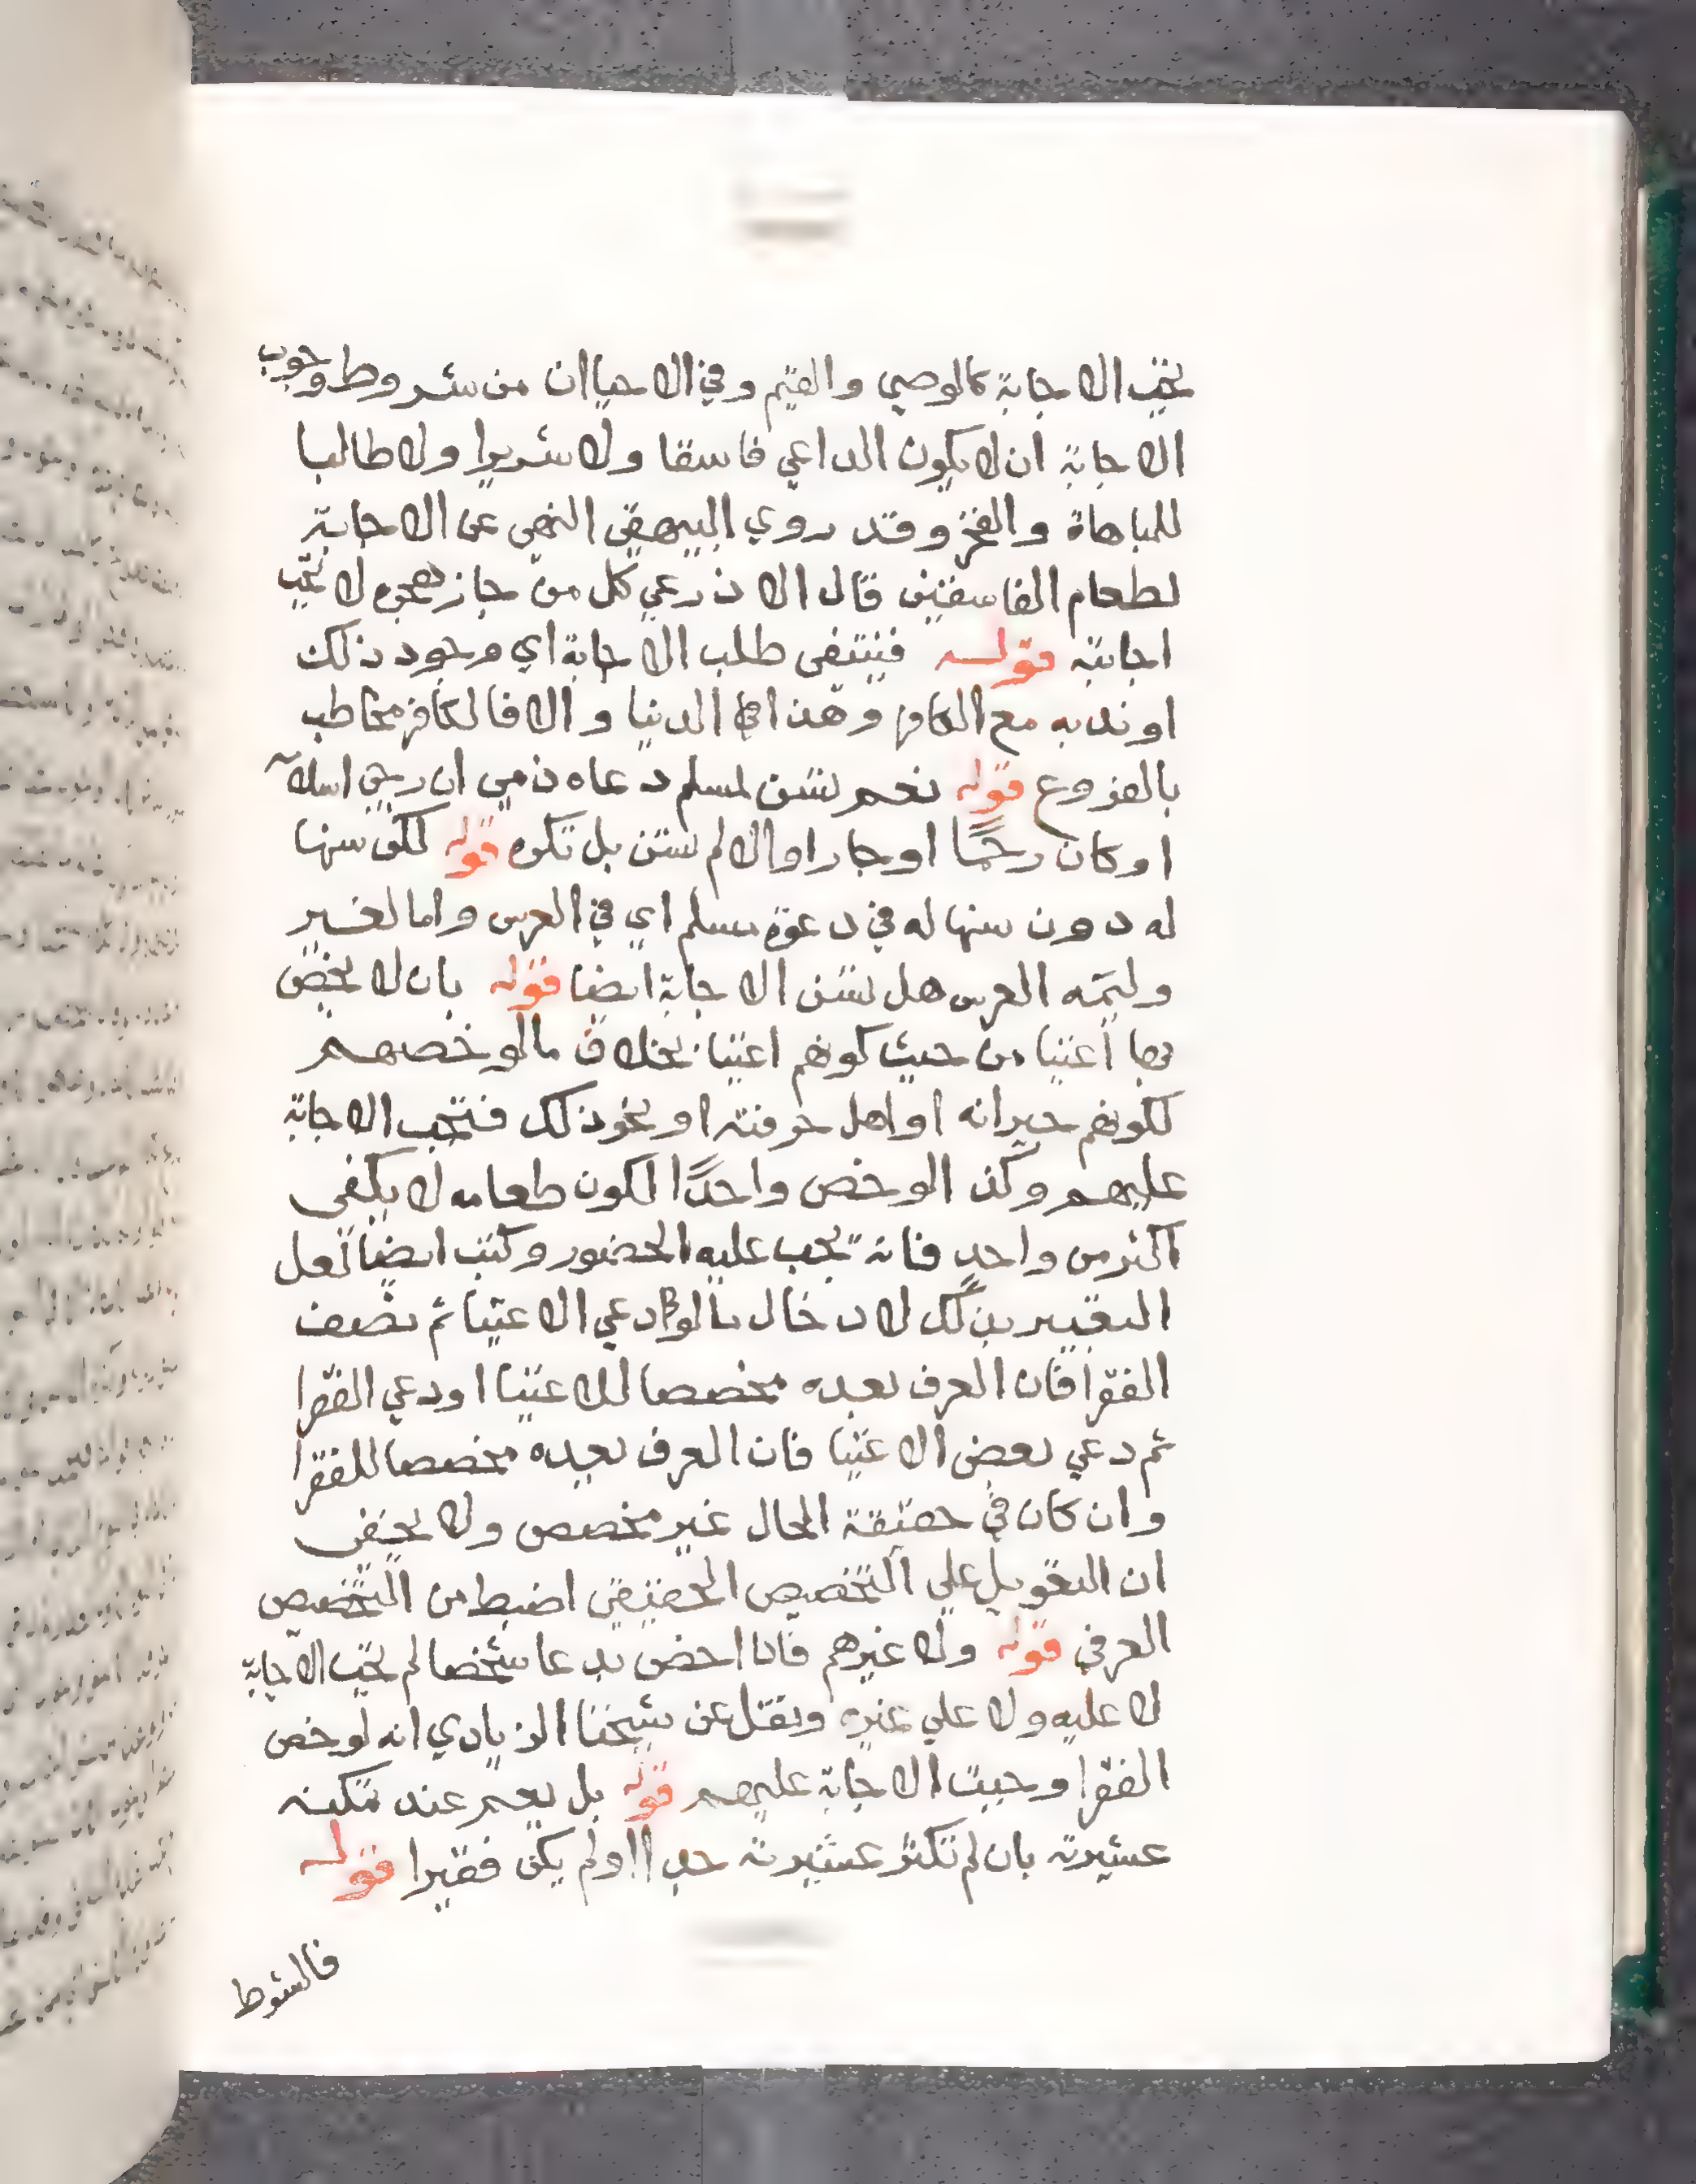 تجب الاجابة كالوصي والقيم وفي الاحياان من شروط وجوب
الاجابة ان لا يكون الداعي فاسقا ولا شريرا ولا طالبا
للمباهاة والفخر وقد روي البيهقي النهي عن الاجابة
لطعام الفاسقين قال الاذرعي كل من جاز هجره لا تجب
اجابته قوله فينتفى طلب الاجابة اي مرجود ذلك
او ندبه مع الكافر وهذا في الدنيا والا فالكافر مخاطب
بالفروع قوله نعم تسن لمسلم دعاه ذمي ان رجي اسلا
او كان رحما او جارا والا لم تسن بل تكره قوله لكن سنها
له دون سنها له في دعوة مسلم اي في العرس واما لغير
وليمه العرس هل تسن الاجابة ايضا قوله بان لا يخص
بها اغنيا من حيث كونهم اغنيا بخلاف ما لو خصهم
لكونهم جيرانه او اهل حرفته او نحو ذلك فتجب الاجابة
عليهم وكذا لو خص واحدًا لكون طعامه لا يكفى
اكثر من واحد فانه يجب عليه الحضور وكتب ايضا لعل
التعبير بذلك لادخال ما لو دعي الاغنيا ثم نصف
الفقرا فان العرف يعده مخصصا للاغنيا او دعي الفقرا
ثم دعي بعض الاغنيا فان العرف يعده مخصصا للفقرا
وان كان في حقيقة الحال غير مخصص ولا يخفى
ان التعويل علي التخصيص الحقيقي اضبط من التخصيص
العرفي قوله ولا غيرهم فاذا احض بدعا شخصا لم تجب الاجابة
لا عليه ولا علي غيره ونقل عن شيخنا الزيادي انه لو خص
الفقرا وجبت الاجابة عليهم قوله بل يعم عند تمكنه
عشيرته بان لم تكثر عشيرته جدا او لم يكن فقيرا قوله
فالشرط